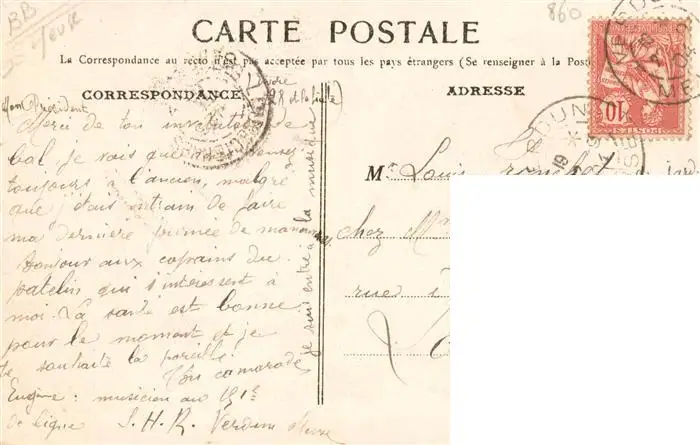 BB
860
CARTE POSTALE
La Correspondance au recto n'est pas acceptée par tous les pays étrangers (Se renseigner à la Poste
CORRESPONDANCE
ADRESSE
Mon Président
Merci de ton invitation de
bal je vois que tu penses
toujours à l'ancien, malgré
que j'étais en train de faire
ma dernière journée de manœuvres.
Bonjour aux copains du
patelin qui s'intéressent à
moi. La santé est bonne
pour le moment et je
te souhaite la pareille.
Ton camarade
Eugène: musicien au 151e
de ligne S.H.R. Verdun Meuse
je suis entré à la musique
Mr Louis
chez Mr
rue
10
POSTES
VERDUN
MEUSE